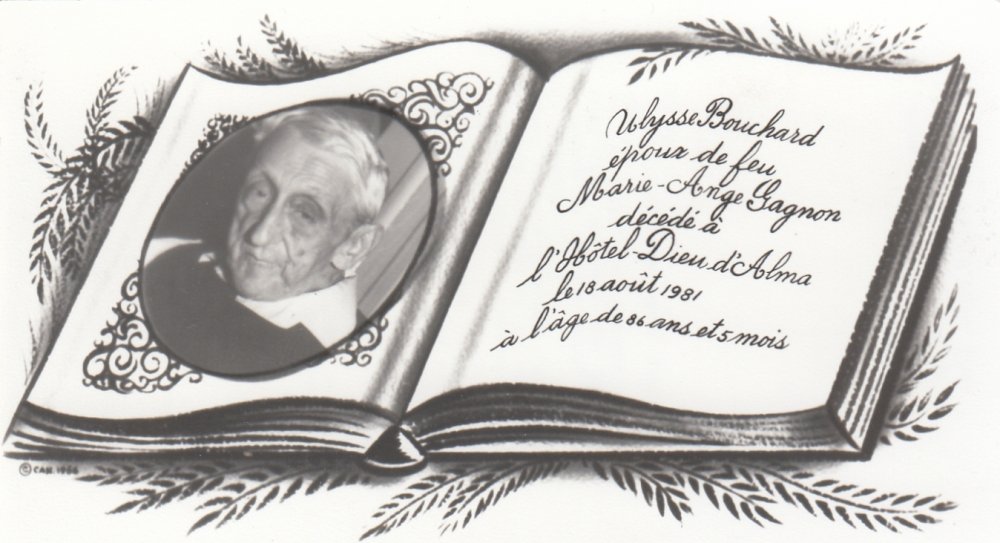 Ulysse Bouchard
époux de feu
Marie-Ange Gagnon
décédé à
l'Hôtel-Dieu d'Alma
le 18 août 1981
à l'âge de 86 ans et 5 mois
© CAN. 1966